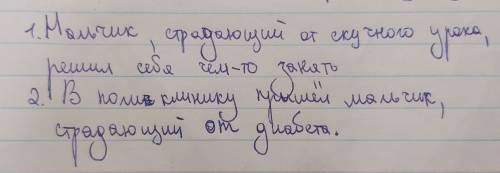 1. Мальчик, страдающий от скучного урока,
решил себя чем-то занять
2. В поликлинику пришёл мальчик,
страдающий от диабета.